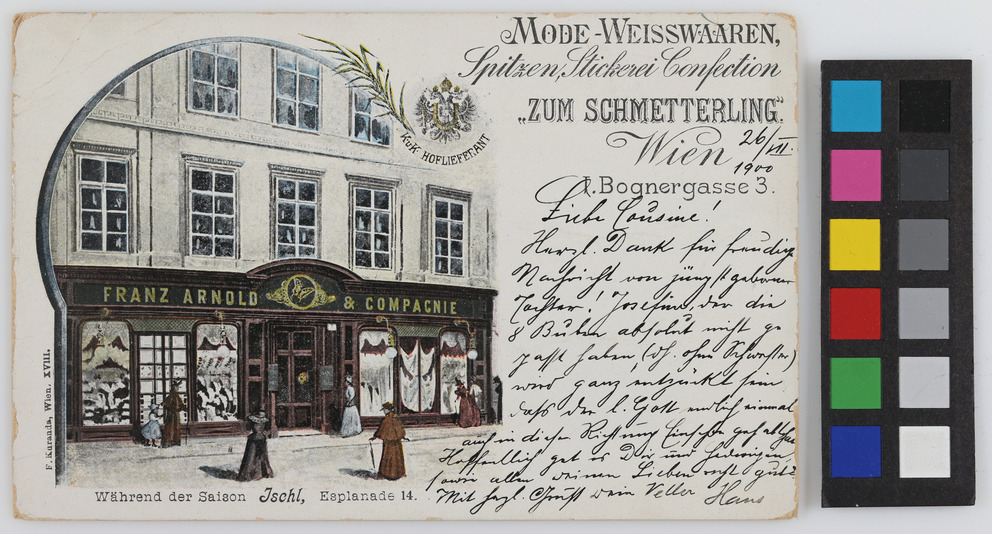 MODE-WEISSWAAREN,
Spitzen, Stickerei Confection
„ZUM SCHMETTERLING".
Wien
26/VII.
1900
I. Bognergasse 3.
K.u.K. HOFLIEFERANT
FRANZ ARNOLD & COMPAGNIE
Liebe Cousine!
Herzl. Dank für freudige
Nachricht von jüngst geborner
Tochter! Josefine, der die
8 Buben absolut nicht ge
passt haben (d.h. ohne Schwester)
wird ganz entzückt sein
dass der l. Gott endlich einmal
auch in dieser Richtung Einsehen
Hoffentlich geht es Dir und
sowie allen deinen Lieben recht gut?
Mit herzl. Gruß dein Vetter Hans
F. Kuranda, Wien, XVIII.
Während der Saison Ischl, Esplanade 14.